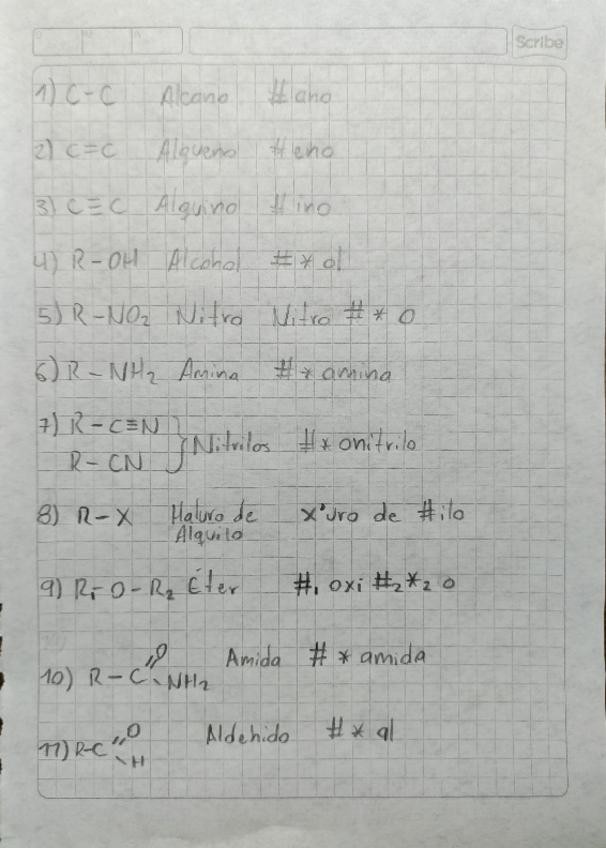 Scribe
1) C-C Alcano #ano
2) C=C Alqueno #eno
3) C≡C Alquino #ino
4) R-OH Alcohol #*ol
5) R-NO₂ Nitro Nitro #*o
6) R-NH₂ Amina #*amina
7) R-C≡N
R-CN } Nitrilos #*onitrilo
8) R-X Haluro de x'uro de #ilo
Alquilo
9) R₁-O-R₂ Éter #₁ oxi #₂*₂ o
O
10) R-C Amida #*amida
NH₂
O
11) R-C Aldehido #*al
H